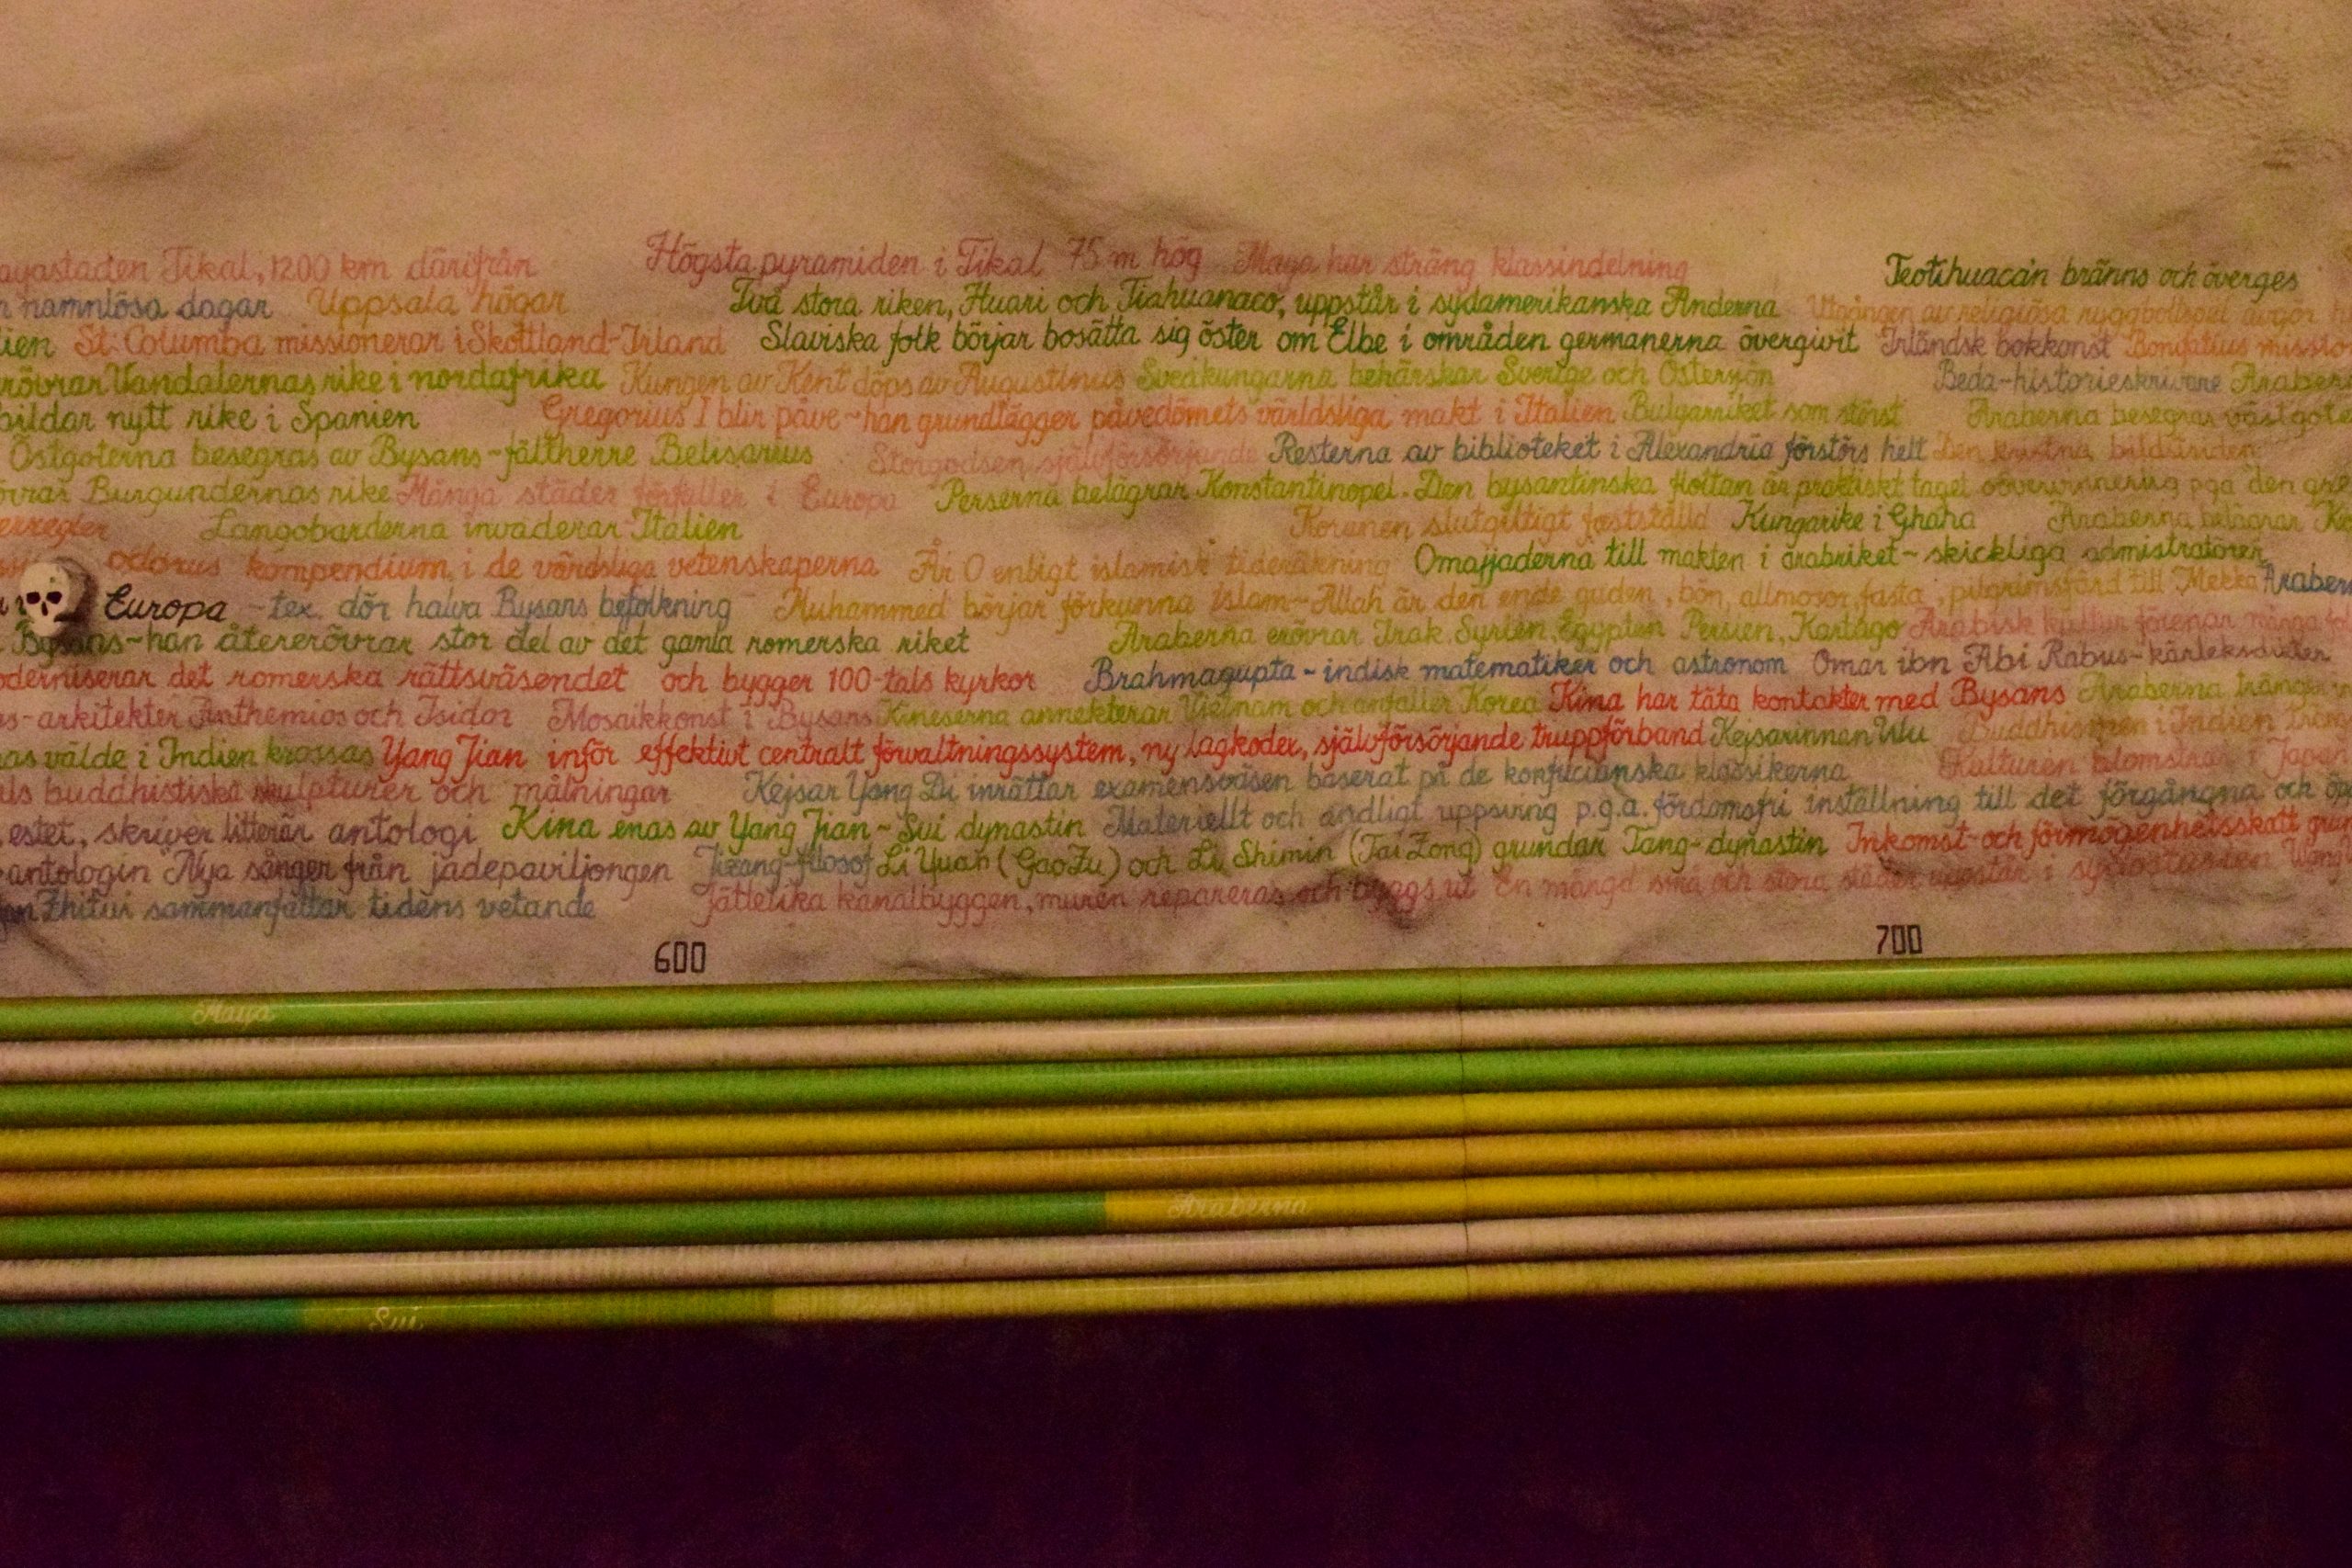 ayastaden Tikal, 1200 km därifrån Högsta pyramiden i Tikal 75 m hög Maya har sträng klassindelning Teotihuacán bränns och överges
namnlösa dagar Uppsala högar Två stora riken, Huari och Tiahuanaco, uppstår i sydamerikanska Anderna Utgången av religiösa
lien St. Columba missionerar i Skottland-Irland Slaviska folk börjar bosätta sig öster om Elbe i områden germanerna övergivit Irländsk bokkonst Bonifatius missio
rövrar Vandalernas rike i nordafrika Kungen av Kent döps av Augustinus Sveakungarna behärskar Sverige och Östersjön Beda-historieskrivare Araber
bildar nytt rike i Spanien Gregorius I blir påve~han grundlägger påvedömets världsliga makt i Italien Bulgarriket som störst Araberna besegras västgot
Östgoterna besegras av Bysans-fältherre Belisarius Storgodsen självförsörjande Resterna av biblioteket i Alexandria förstörs helt Den kristna bildstriden
övrar Burgundernas rike Många städer förfaller i Europa Perserna belägrar Konstantinopel. Den bysantinska flottan är praktiskt taget oövervinnerlig pga den gre
erregler Langobarderna invaderar Italien Koranen slutgiltigt fastställd Kungarike i Ghana Araberna belägrar
odorus kompendium i de värdsliga vetenskaperna År 0 enligt islamisk tideräkning Omajjaderna till makten i arabriket~skickliga admistratörer
Europa - tex. dör halva Bysans befolkning Muhammed börjar förkunna islam~Allah är den ende guden, bön, allmosor, fasta, pilgrimsfärd till Mekka Araber
Bysans~han återerövrar stor del av det gamla romerska riket Araberna erövrar Irak, Syrien, Egypten Persien, Kartago Arabisk kultur förenar många
oderniserar det romerska rättsväsendet och bygger 100-tals kyrkor Brahmagupta - indisk matematiker och astronom Omar ibn Abi Rabus-kärleksdikter
s-arkitekter Anthemios och Isidor Mosaikkonst i Bysans Kineserna annekterar Vietnam och anfaller Korea Kina har täta kontakter med Bysans Araberna tränger
as välde i Indien krossas Yang Jian inför effektivt centralt förvaltningssystem, ny lagkodex, självförsörjande truppförband Kejsarinnan Wu Buddhismen i Indien
ls buddhistiska skulpturer och målningar Kejsar Yang Di inrättar examensväsen baserat på de konfucianska klassikerna Kulturen blomstrar i Japan
estet, skriver litterär antologi Kina enas av Yang Jian~Sui dynastin Materiellt och andligt uppsving p.g.a. fördomsfri inställning till det förgångna och
antologin Nya sånger från jadepaviljongen Jizang-filosof Li Yuan (GaoZu) och Li Shimin (Tai Zong) grundar Tang-dynastin Inkomst-och förmögenhetsskatt
Zhitui sammanfattar tidens vetande Jättelika kanalbyggen, muren repareras och byggs ut En mängd små och stora städer uppstår i sydöstasien
600 700
Maya
Araberna
Sui